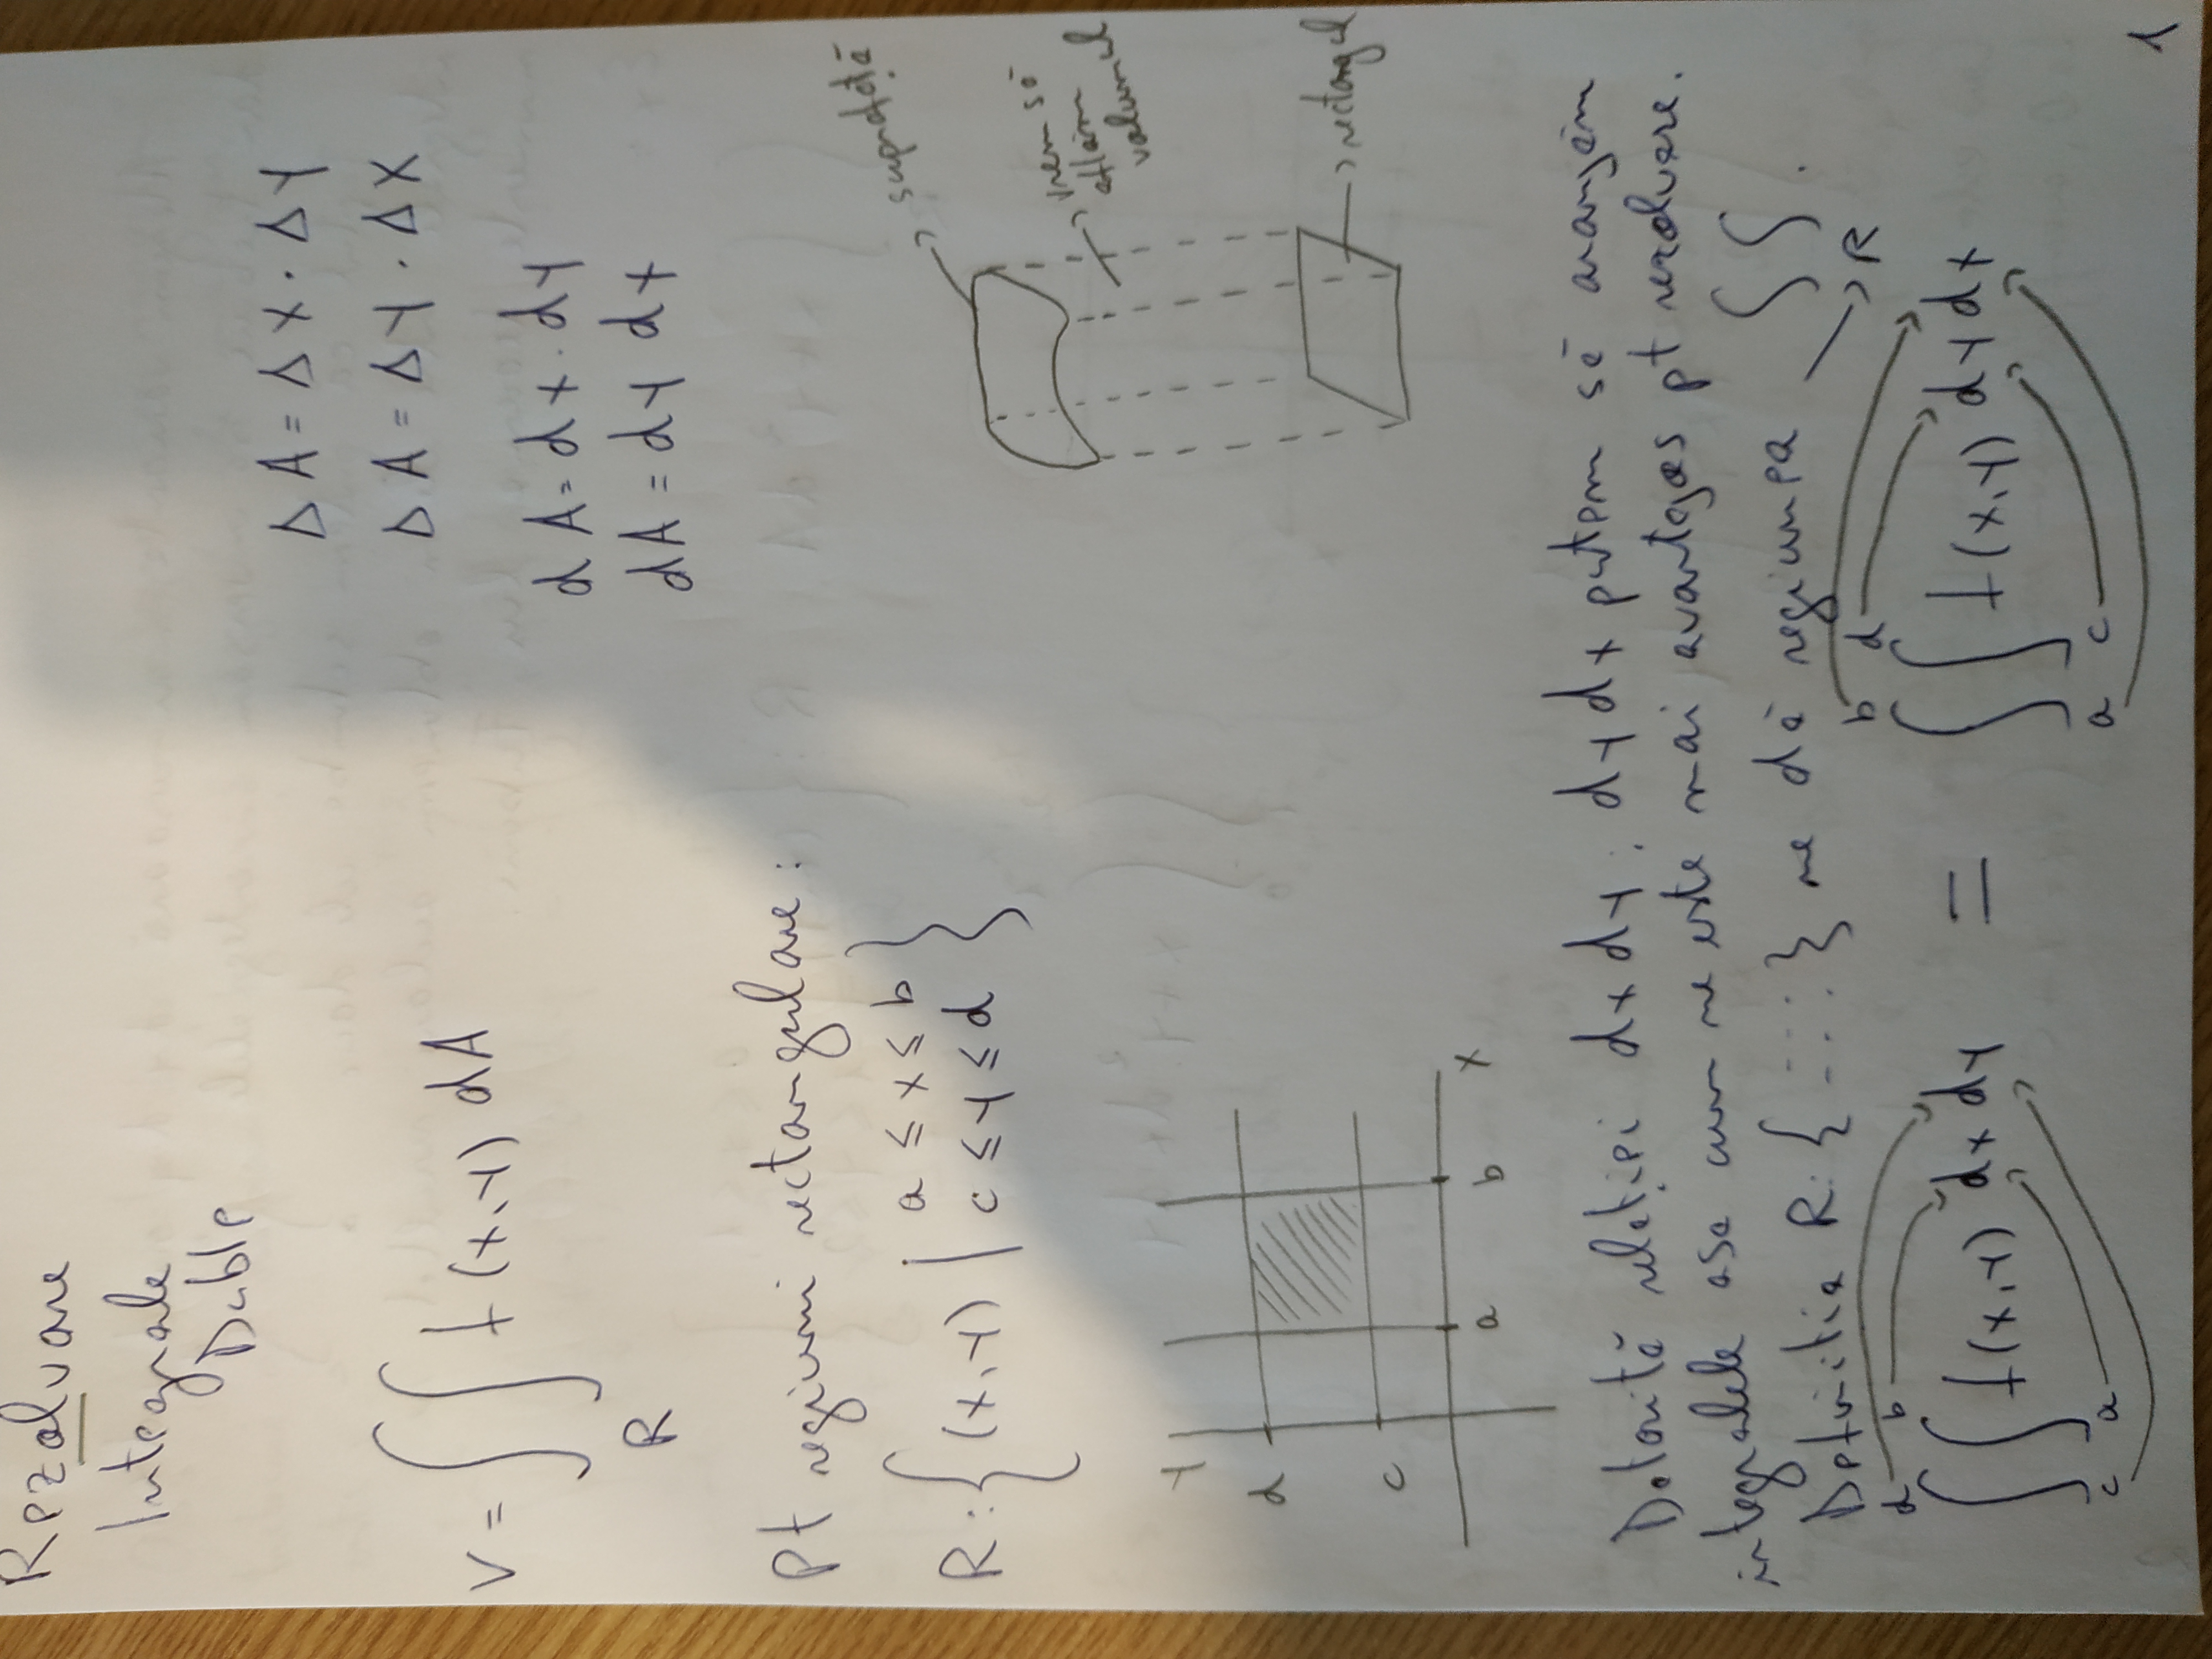 Rezolvare
Integrale
Duble
ΔA = ΔX · ΔY
ΔA = ΔY · ΔX
V = ∫∫ f(x,y) dA
R
dA = dx · dy
dA = dy dx
Pt regiuni rectangulare:
R: { (x,y) | a ≤ x ≤ b
c ≤ y ≤ d }
suprafață
vrem să
aflăm
volumul
y
d
c
a b x
rectangul
Datorită relației dx dy ; dy dx putem să aranjăm
integralele asa cum ne este mai avantajos pt rezolvare.
Definitia R: { ::: } ne dă regiunea ∫∫.
R
d b
∫∫ f(x,y) dx dy
c a
=
b d
∫∫ f(x,y) dy dx
a c
1